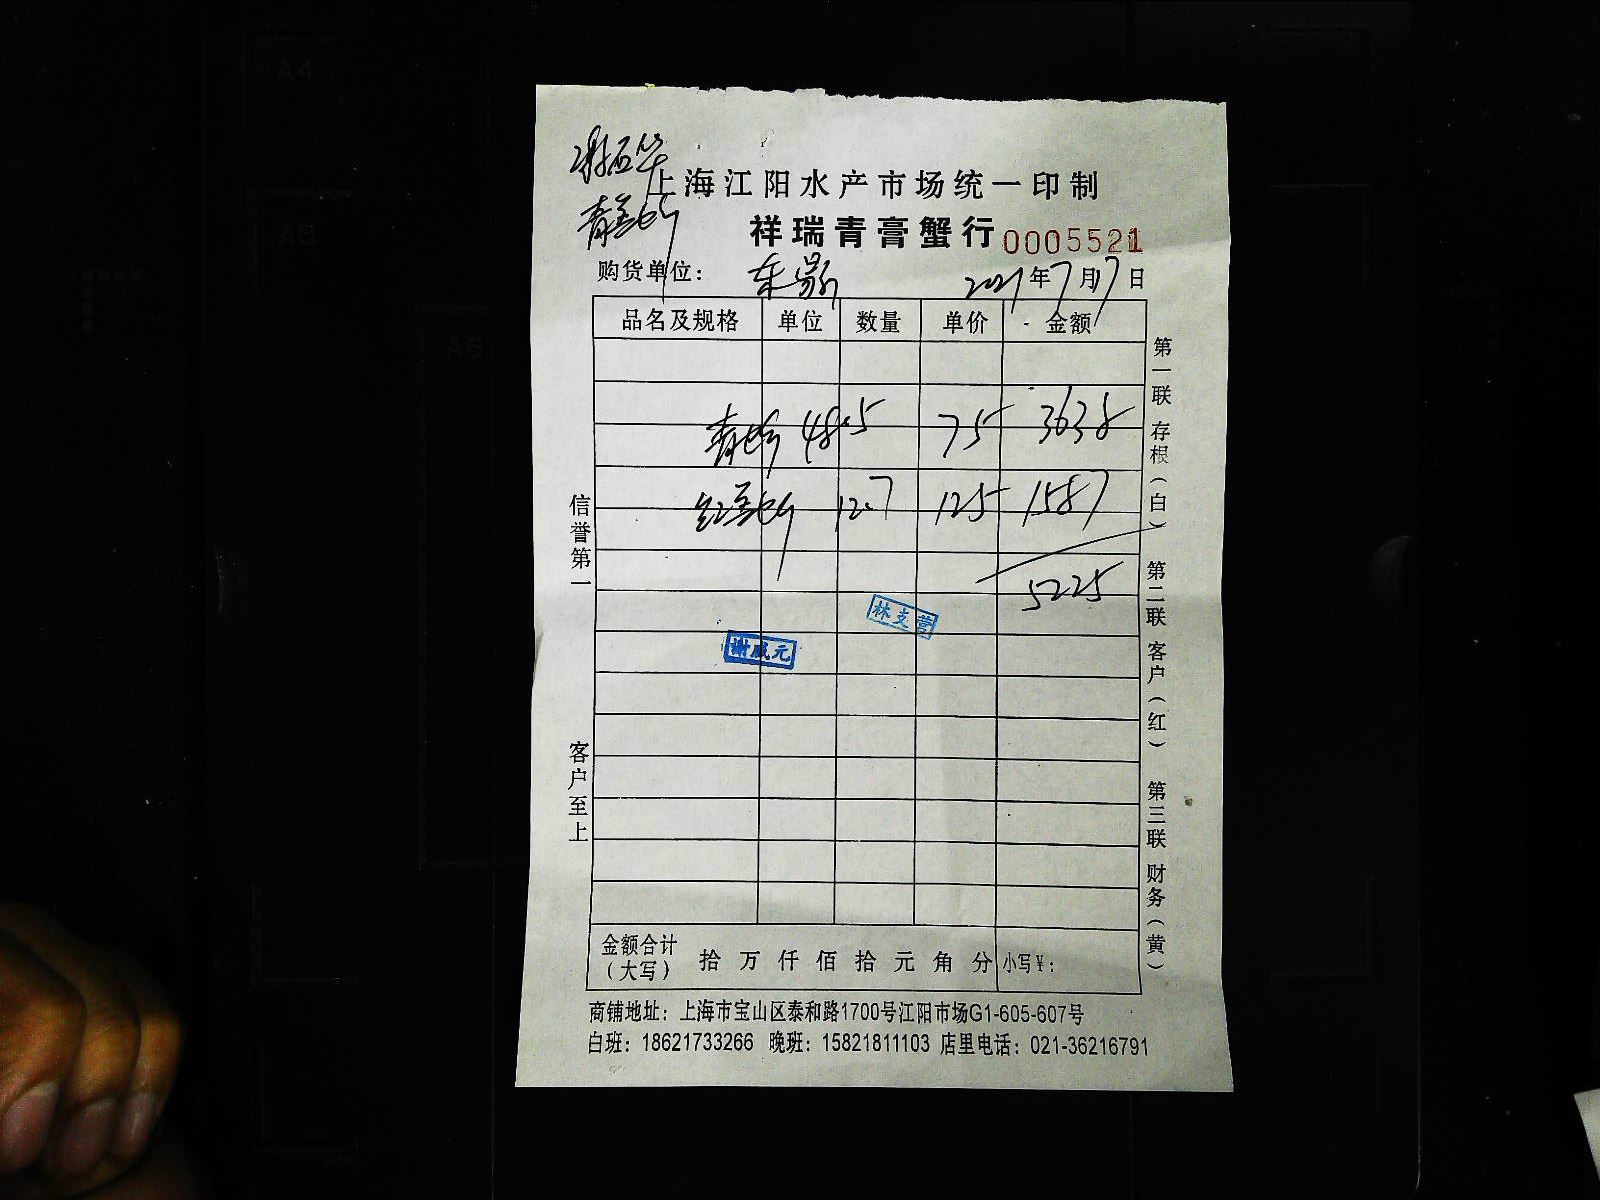 上海江阳水产市场统一印制
祥瑞青膏蟹行 0005521
购货单位： 2021年7月17日
品名及规格 单位 数量 单价 金额
48.5 75 3638
12.7 125 1587
5225
林支营
谢成元
信誉第一
客户至上
第一联 存根（白） 第二联 客户（红） 第三联 财务（黄）
金额合计（大写） 拾 万 仟 佰 拾 元 角 分 小写￥：
商铺地址：上海市宝山区泰和路1700号江阳市场G1-605-607号
白班：18621733266 晚班：15821811103 店里电话：021-36216791
A4
A5
A6